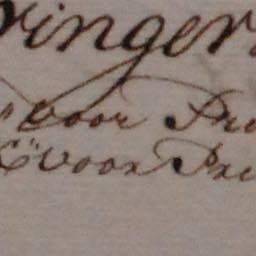 ringer
voor Pr
voor Pri